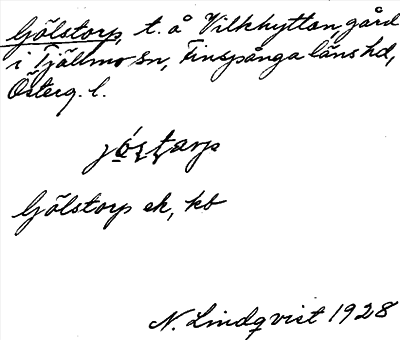 Gölstorp, t. å Vilkhyttan gård
i Tjällmo sn, Finspånga läns hd,
Österg. l.
Gölstorp ek, kb
N. Lindqvist 1928